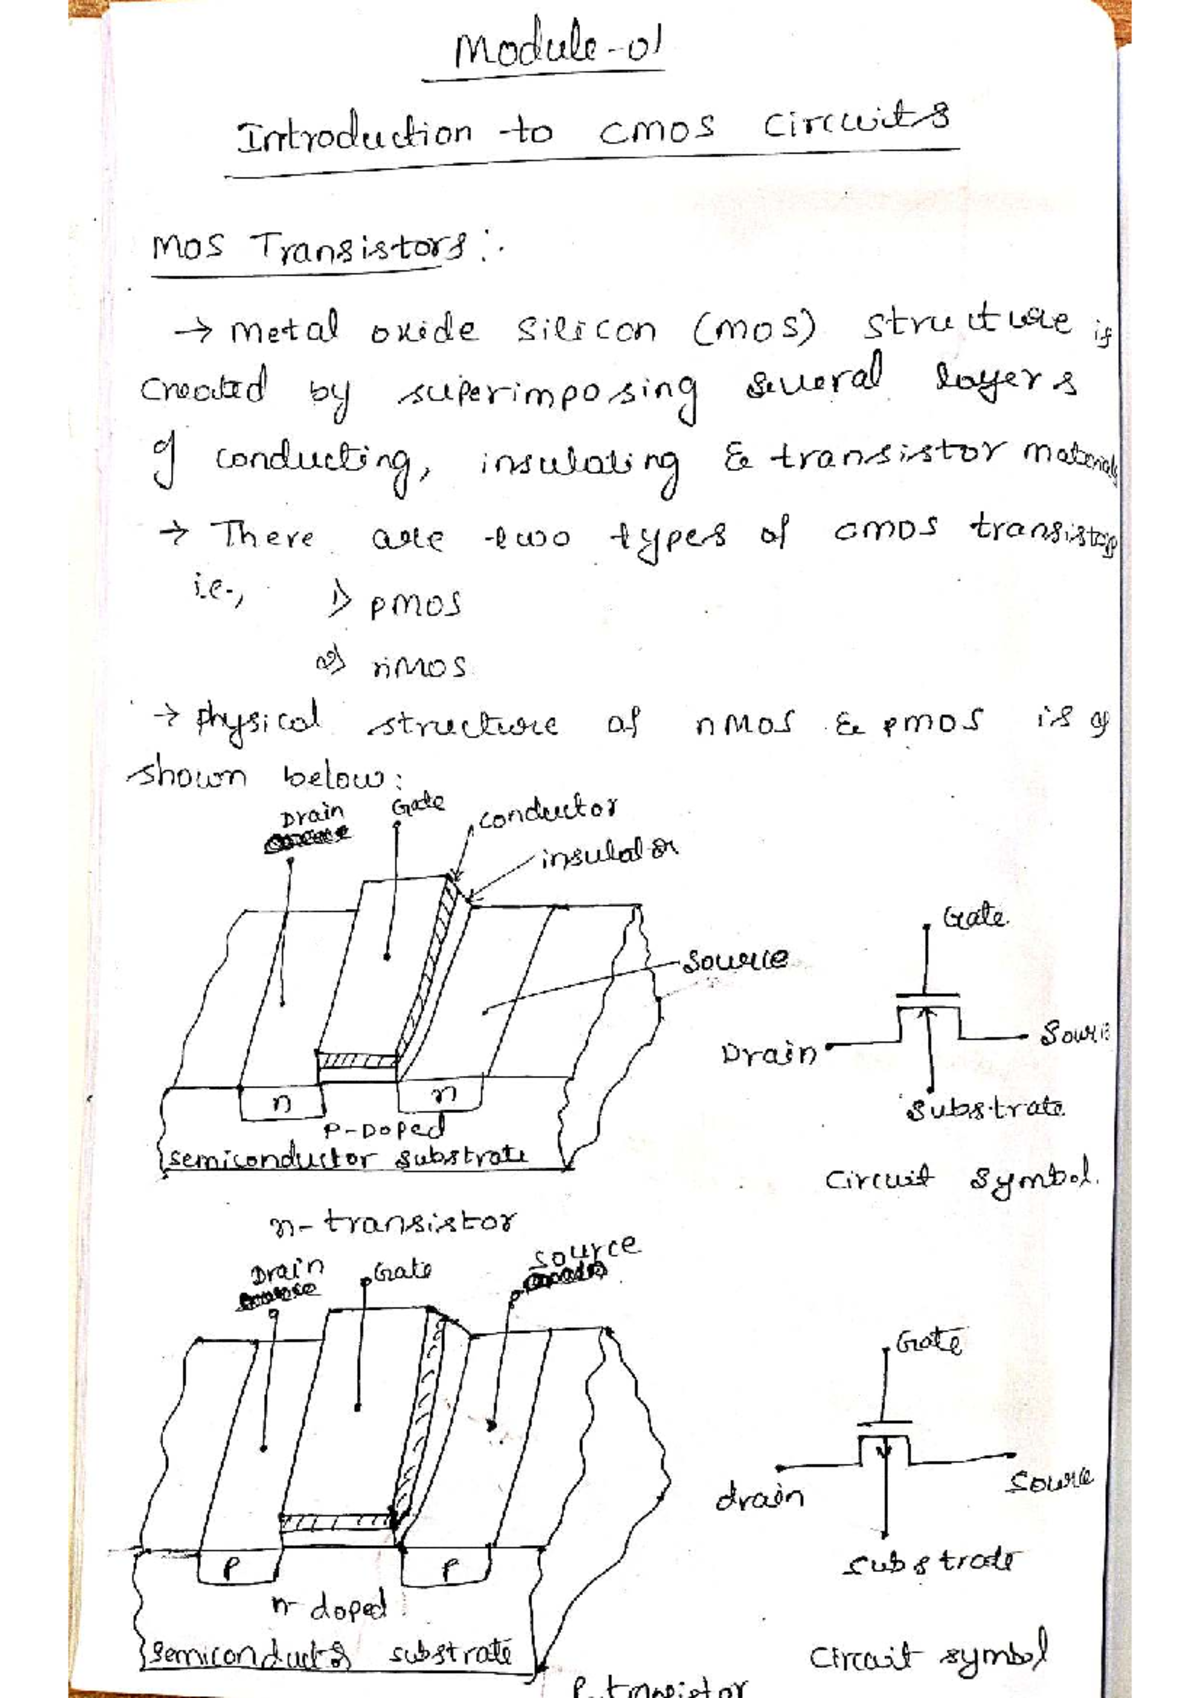 Module-01
Introduction to CMOS Circuits
MOS Transistors:-
→ Metal oxide silicon (MOS) structure is
created by superimposing several layers
of conducting, insulating & transistor materials
→ There are two types of CMOS transistors
i.e.,
1) PMOS
2) nMOS
→ Physical structure of nMOS & PMOS is as
shown below:
Drain
Gate
conductor
insulator
source
n
n
P-Doped
semiconductor substrate
n-transistor
Gate
Drain
Source
Substrate
Circuit symbol.
Drain
Gate
Source
P
P
n-doped
semiconductor substrate
P-transistor
Gate
drain
source
substrate
Circuit symbol